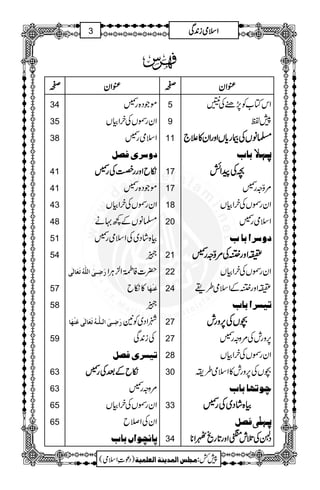 3 اسلامی زندگی
فہرس
عنوان صفحہ عنوان صفحہ
اس کتاب کو پڑھنے کی نیتیں 5
پیش لفظ 9
مسلمانوں کی بیماریاں اور ان کا علاج 11
پہلا باب
بچہ کی پیدائش 17
مروّجہ رسمیں 17
ان رسموں کی خرابیاں 18
اسلامی رسمیں 20
دوسرا باب
عقیقہ اور ختنہ کی مروّجہ رسمیں 21
ان رسموں کی خرابیاں 22
عقیقہ اور ختنہ کے اسلامی طریقے 24
تیسرا باب
بچوں کی پرورش 27
پرورش کی مروجہ رسمیں 27
ان رسموں کی خرابیاں 28
بچوں کی پرورش کا اسلامی طریقہ 30
چوتھا باب
بیاہ شادی کی رسمیں 33
پہلی فصل
دلہن کی تلاش، منگنی اور تاریخ ٹھہرانا 34
موجودہ رسمیں 34
ان رسموں کی خرابیاں 35
اسلامی رسمیں 38
دوسری فصل
نکاح اور رخصت کی رسمیں 41
موجودہ رسمیں 41
ان رسموں کی خرابیاں 43
مسلمانوں کے کچھ بہانے 48
بیاہ شادی کی اسلامی رسمیں 51
جہیز 54
حضرت فاطمۃ الزہرا رَضِیَ اللہُ تَعَالٰی عَنْہَا کا نکاح 57
جہیز 58
شہزادی کونین رَضِیَ اللہُ تَعَالٰی عَنْہَا کی زندگی 59
تیسری فصل
نکاح کے بعد کی رسمیں 63
مروجہ رسمیں 63
ان رسموں کی خرابیاں 65
ان کی اصلاح 65
پانچواں باب
پیش کش: مجلس المدینۃ العلمیۃ (دعوتِ اسلامی)